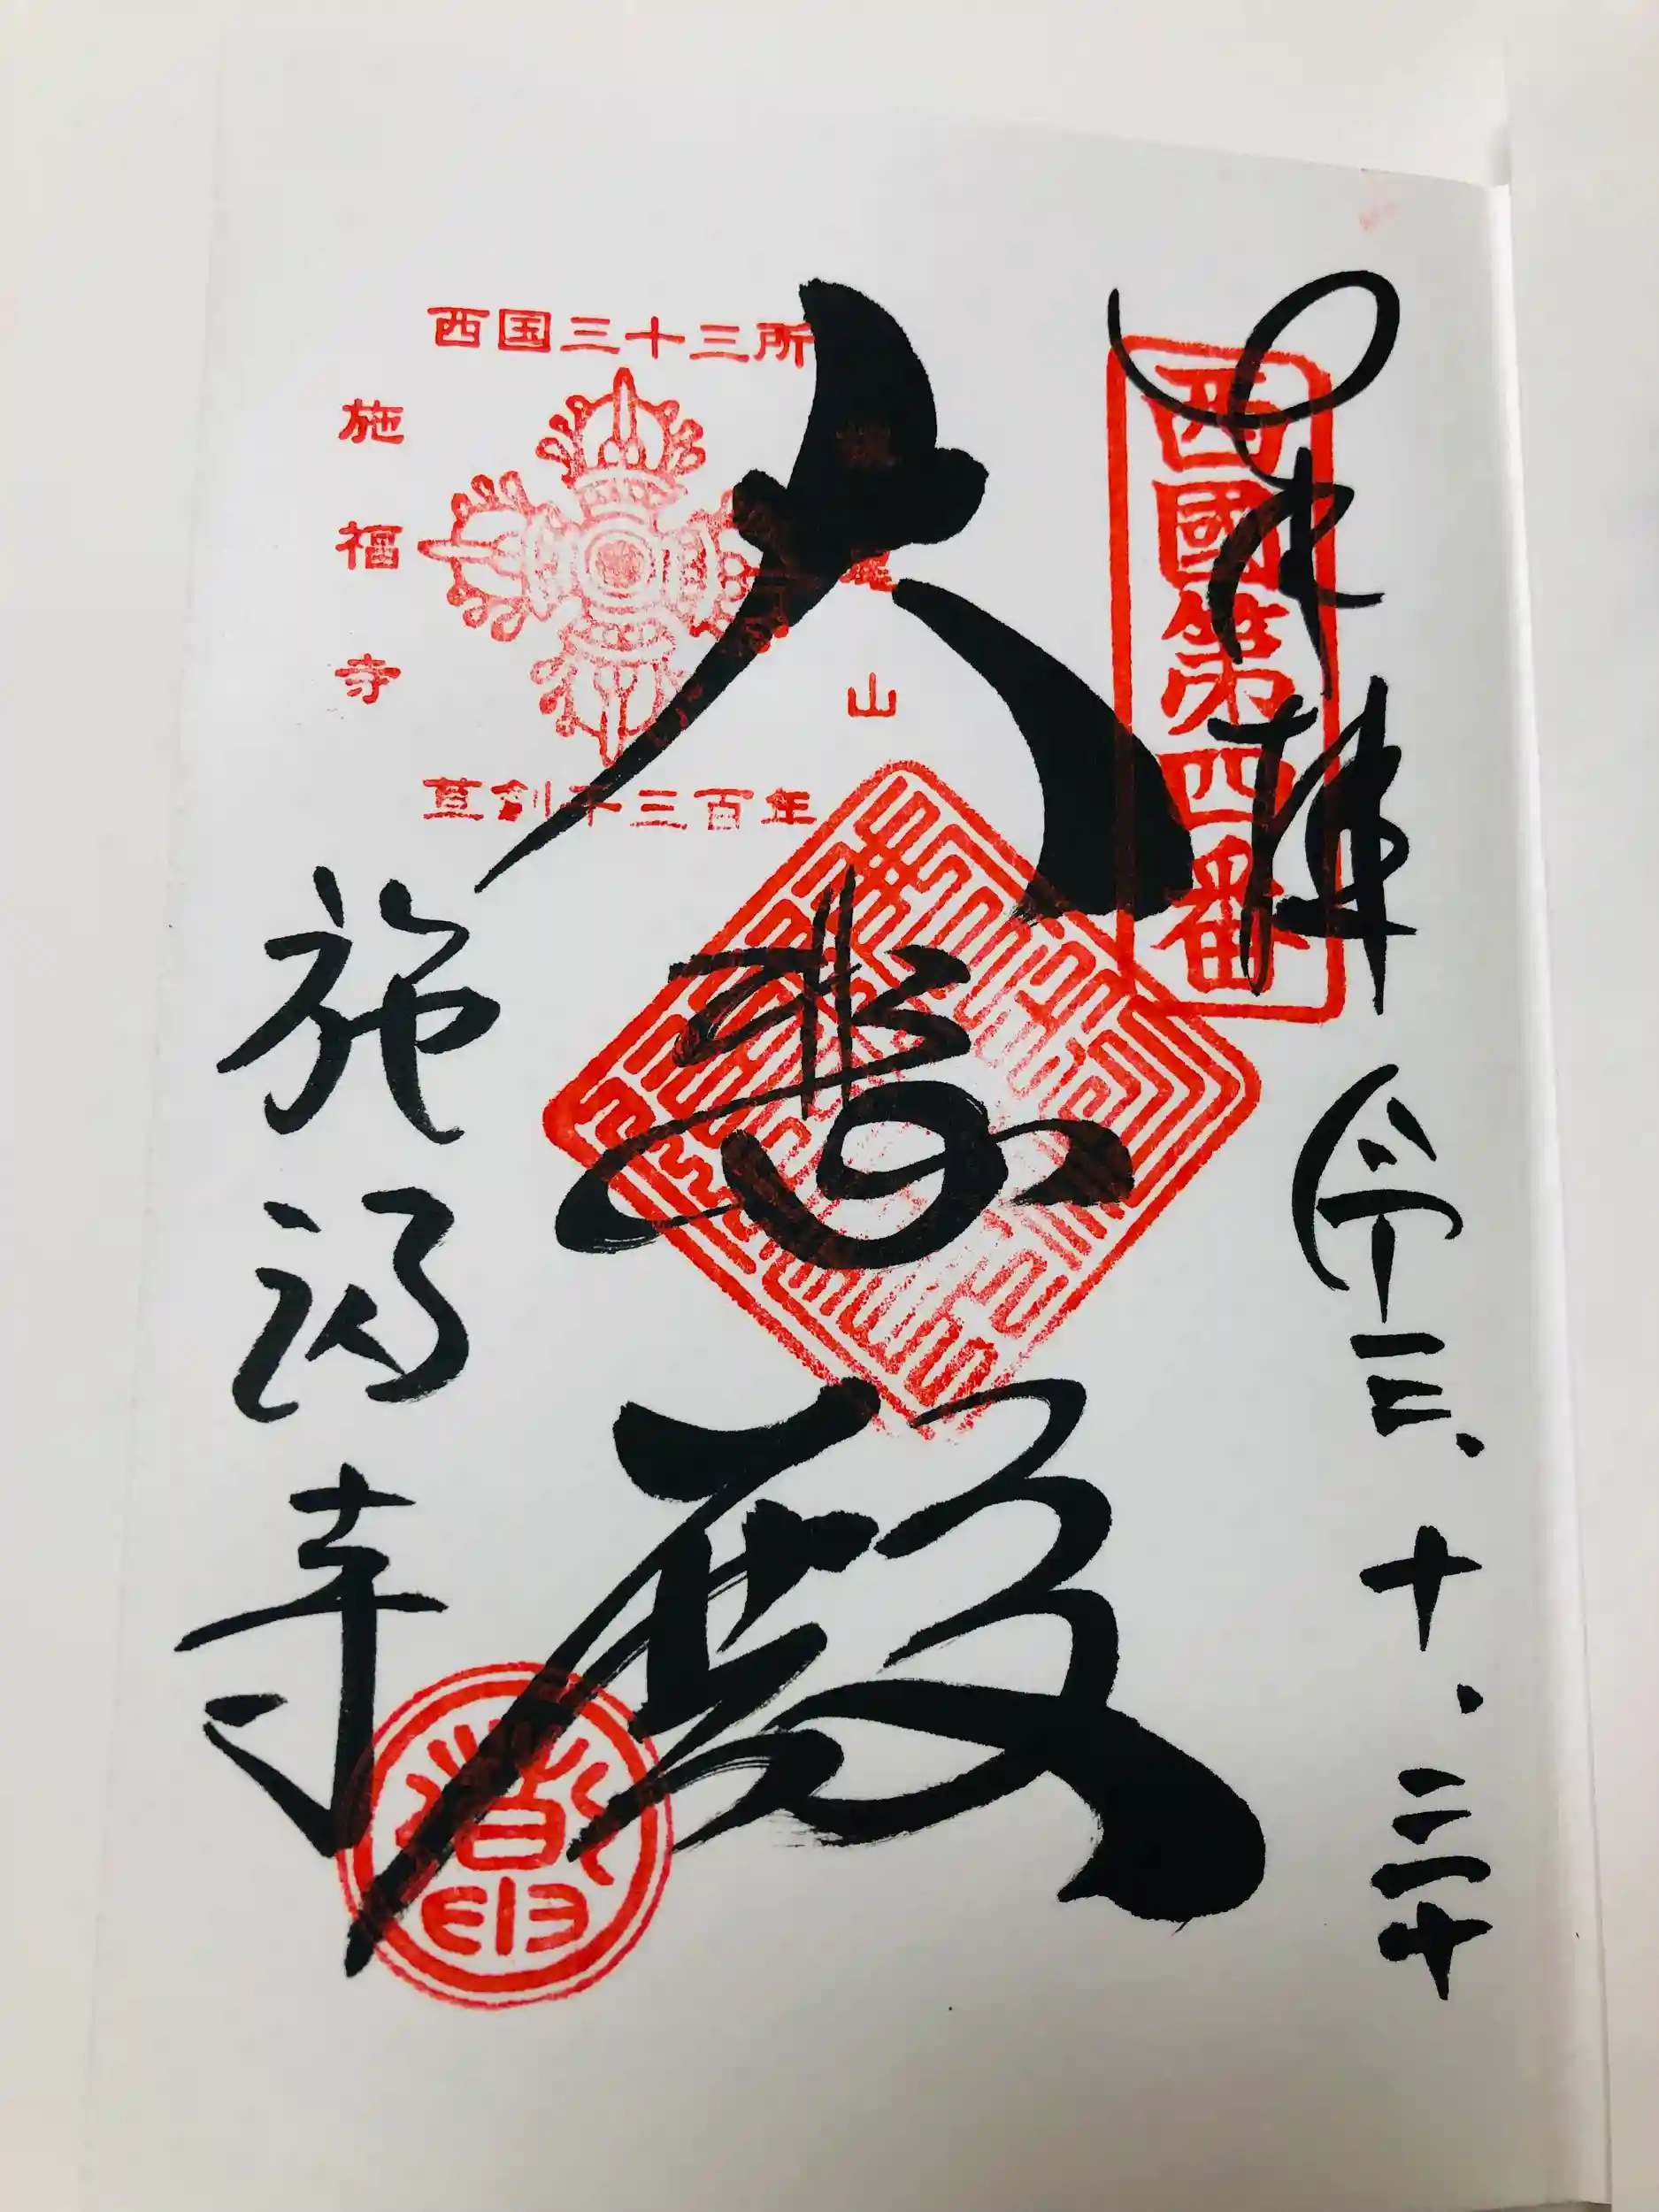 奉拝 令三.十.二二十
西國第四番
大悲殿
西国三十三所
山
施福寺
草創千三百年
施福寺
印